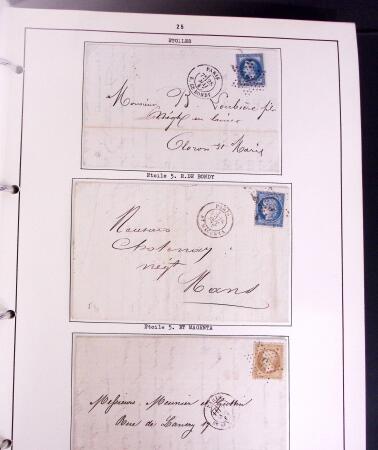 25
ETOILES
PARIS
R. DE BONDY
Monsieur B. Loubière fils
Négt en laines
Oloron Ste Marie
Etoile 5. R.DE BONDY
PARIS
Messieurs
Chatenay
négt
Mans
Etoile 5. BT MAGENTA
Messieurs Meunier et
Rue de Lancry 17